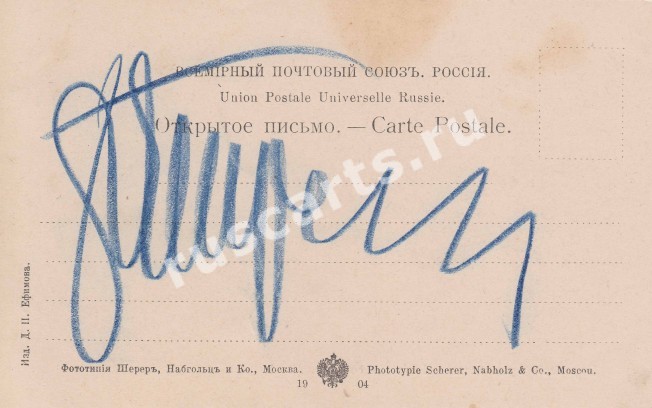 ВСЕМІРНЫЙ ПОЧТОВЫЙ СОЮЗЪ. РОССІЯ.
Union Postale Universelle Russie.
Открытое письмо. — Carte Postale.
ruscarts.ru
Изд. Д. П. Ефимова.
Фототипія Шереръ, Набгольцъ и Ко., Москва.
Phototypie Scherer, Nabholz & Co., Moscou.
19 04